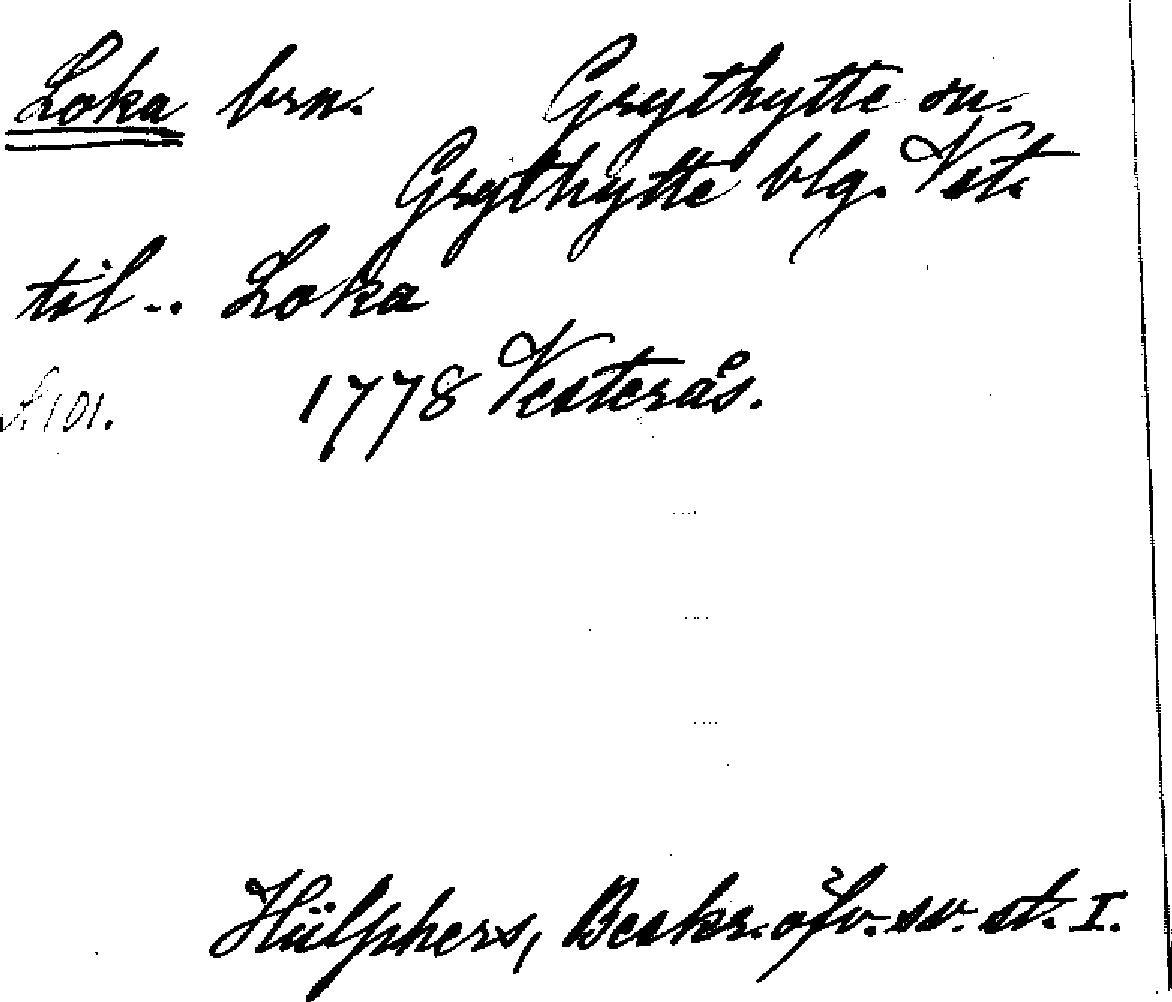 Loka brn. Grythytte sn.
Grythytte blg. Vstm.
till .. Loka
S. 101. 1778 Vesterås.
Hülphers, Beskr. öfv. sv. st. I.